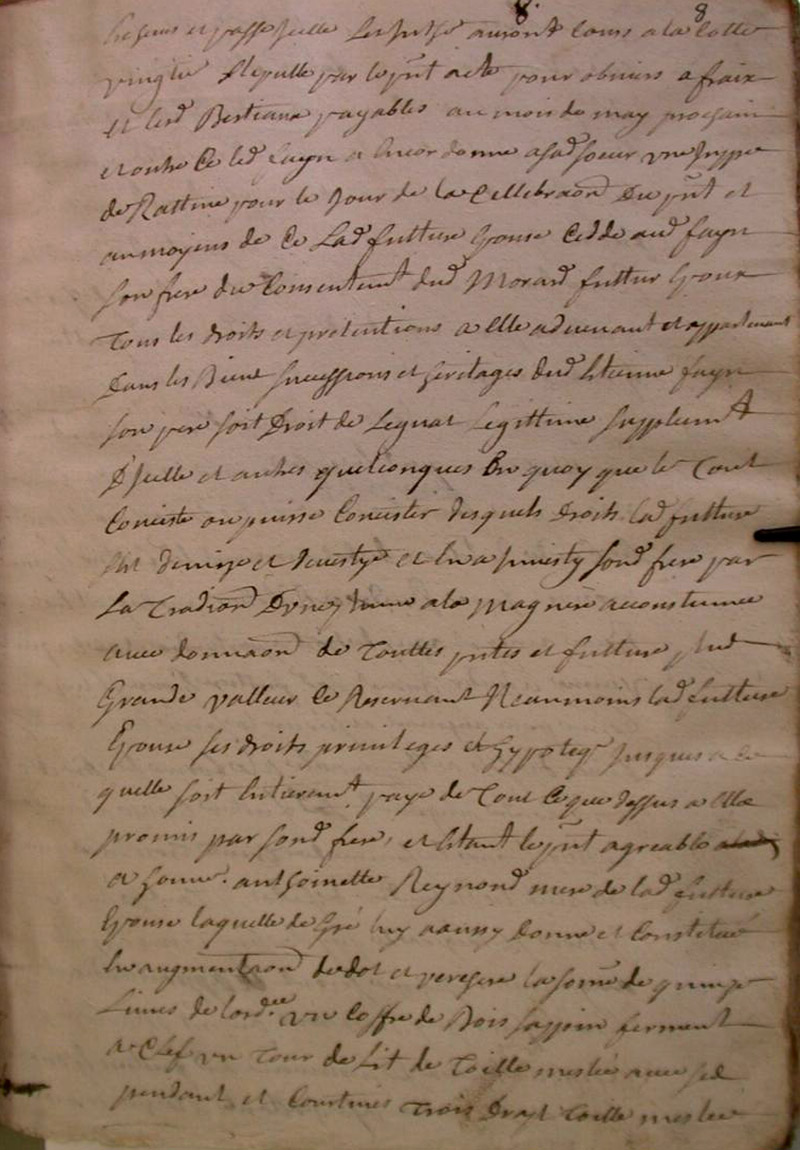 8. 8
et passé icelle Les auront cours a la Cotte
vingtie Stipullé par le pnt acte pour obvier a fraix
Et lesd Bestiaux payables au mois de may prochain
et outre Ce led fayn a Encor donne a sad soeur une juppe
de Rattine pour le Jour de la Cellebraon Du pnt et
aumoyens de Ce Lad future Epouse Cedde aud fayn
son frere du Consentemt dud Morard futtur Epoux
Tous les droits et pretentions a Elle advenant et appartenant
Dans les Biens successions et heritages dud Etienne fayn
son pere soit Droit de Legnat Legittime supplemt
D'Icelle et autres quelconques En quoy que le Tout
Conciste ou puisse Concister desquels Droits lad futture
s'est demize et devestye et En a Investy sond frere par
La Tradion D'une plume a la magniere accoustumee
avec donnaon de Touttes pntes et futture plud
Grande valleur Ce Reservant Neanmoins lad futture
Epouse ses droits privileges et hypoteqe Jusques a ce
quelle soit Entieremt payé de Tout Ce que dessus a Elle
promis par sond frere, et Estant le pnt agreable
a honne. anthoinette Reynond mere de lad futture
Epouse laquelle de Gré luy a aussy Donne et Constitué
En augmentaon de dot et verchere la some de quinze
Livres de lordre un Coffre de Bois sappin ferment
a Clef un Tour de Lit de Toille meslée avec sed
pendant et Courtines Trois Drapt Toille meslée